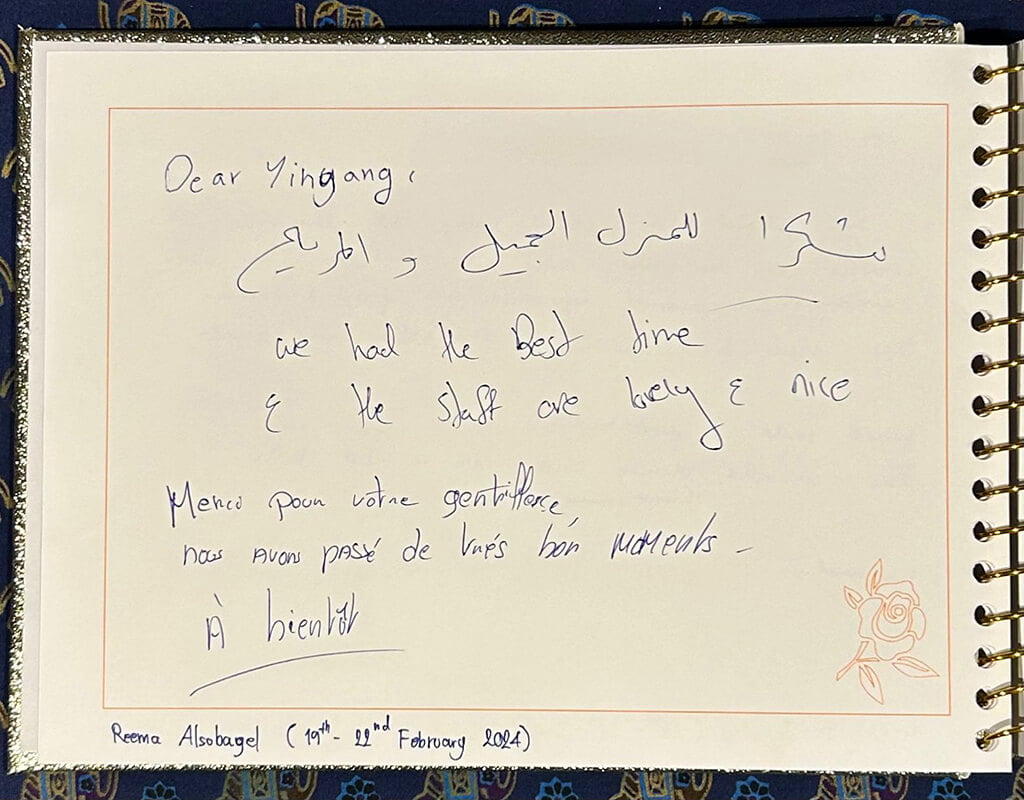 Dear Yingang,
شكرا للمنزل الجميل و المريح
we had the Best time
& the staff are lovely & nice
Merci pour votre gentillesse,
nous avons passé de très bon moments -
À bientôt
Reema Alsobagel (19th - 22nd February 2024)